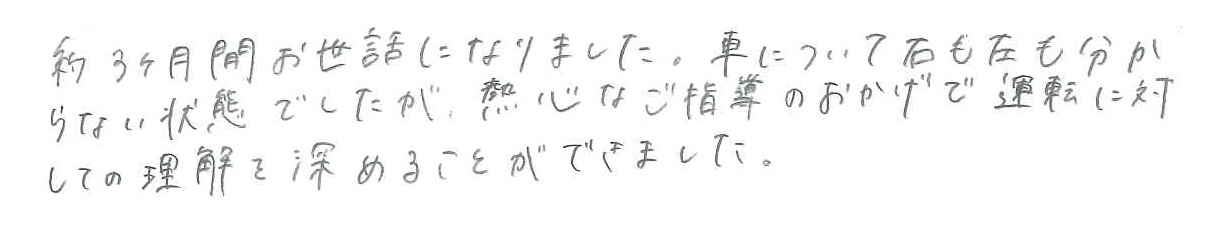 約3ヶ月間お世話になりました。車について右も左も分か
らない状態でしたが、熱心なご指導のおかげで運転に対
しての理解を深めることができました。